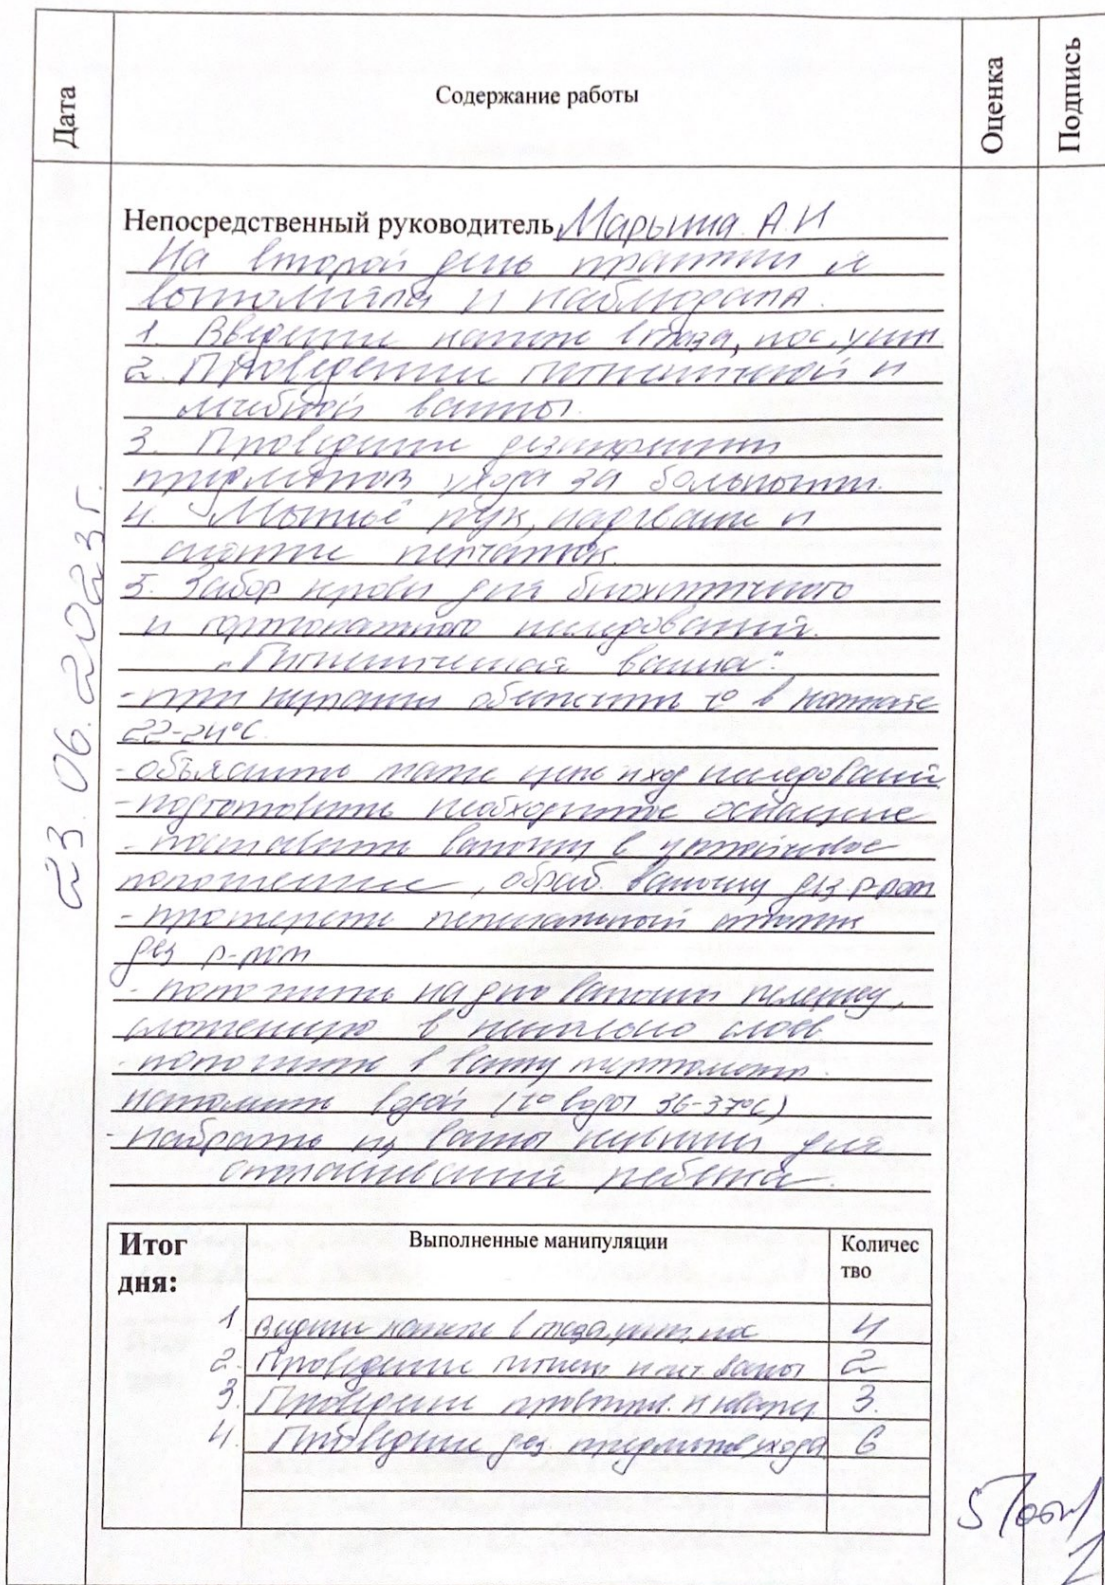 Дата
Содержание работы
Оценка
Подпись
23.06.2023г.
Непосредственный руководитель Марьина А.И
На второй день практики я
выполняла и наблюдала.
1. Введение капель в глаза, нос, уши
2. Проведении гигиенической и
лечебной ванны.
3. Проведение дезинфекции
предметов ухода за больными.
4. Мытьё рук, надевание и
снятие перчаток.
5. Забор крови для биохимического
и гормонального исследований.
"Гигиеническая ванна".
- при обеспечить t° в комнате
22-24°С.
- объяснить маме цель и ход исследований
- подготовить необходимое оснащение
- поставить ванночку в устойчивое
положение, обраб. ванночку дез р-ром
- протереть пеленальный столик
дез р-ром
- положить на дно ванночки пеленку,
сложенную в несколько слоев
- положить в ванну термометр.
наполнить водой (t° воды 36-37°С)
- набрать из ванны кувшин для
ополаскивания ребенка.
Итог
дня:
Выполненные манипуляции
Количес
тво
1 Введение капель в глаза, уши, нос 4
2. Проведение гигиен и леч. ванны 2
3. Проведение 3.
4. Проведение дез. предметов ухода 6
5